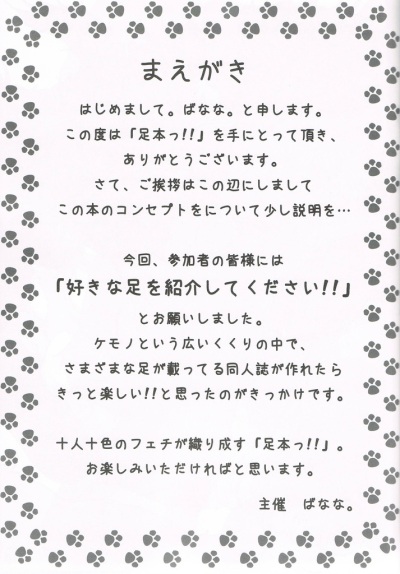 まえがき
はじめまして。ばなな。と申します。
この度は「足本っ!!」を手にとって頂き、
ありがとうございます。
さて、ご挨拶はこの辺にしまして
この本のコンセプトをについて少し説明を…
今回、参加者の皆様には
「好きな足を紹介してください!!」
とお願いしました。
ケモノという広いくくりの中で、
さまざまな足が載ってる同人誌が作れたら
きっと楽しい!!と思ったのがきっかけです。
十人十色のフェチが織り成す「足本っ!!」。
お楽しみいただければと思います。
主催　ばなな。